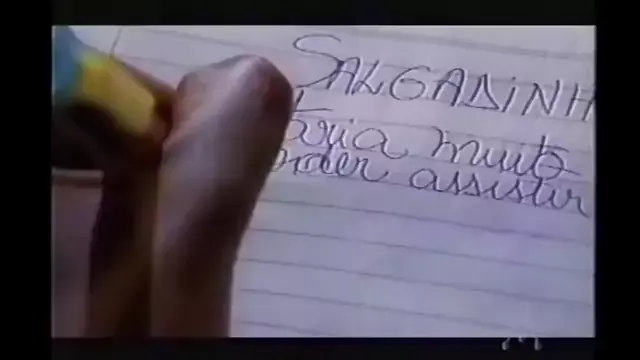 SALGADINH
taria muito
oder assistir